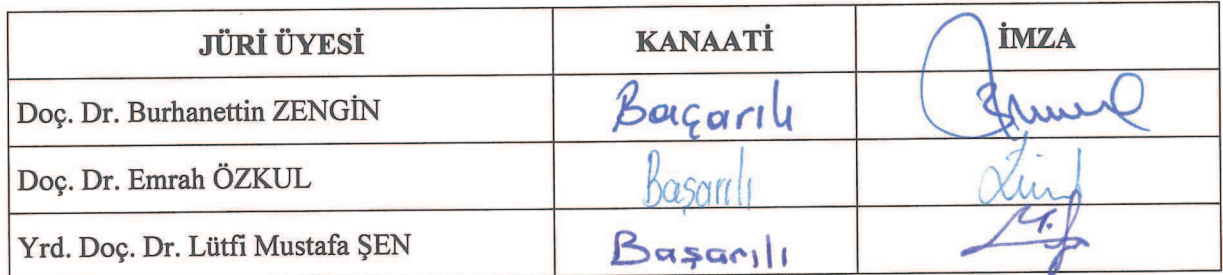 JÜRİ ÜYESİ KANAATİ İMZA
Doç. Dr. Burhanettin ZENGİN Başarılı
Doç. Dr. Emrah ÖZKUL Başarılı
Yrd. Doç. Dr. Lütfi Mustafa ŞEN Başarılı